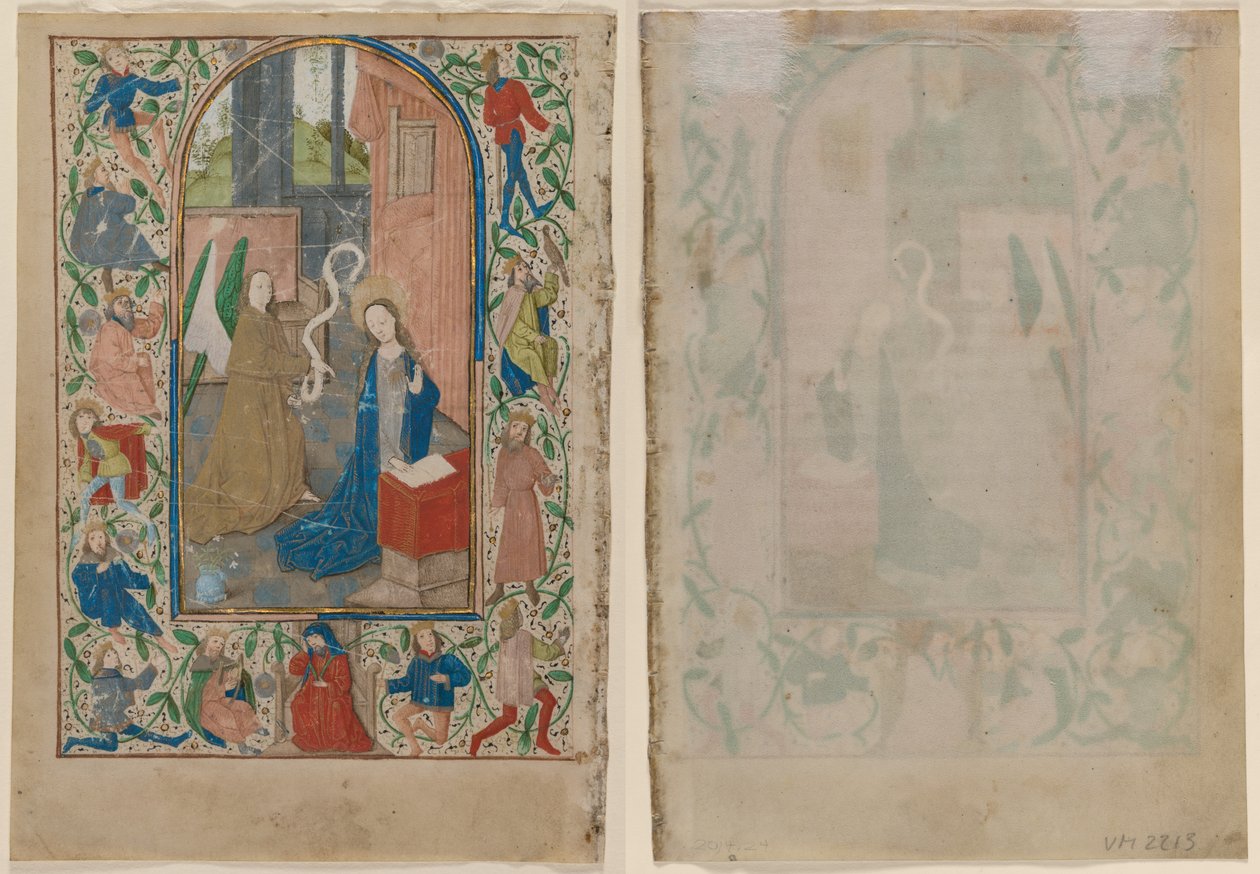 2014.24
VM 2213